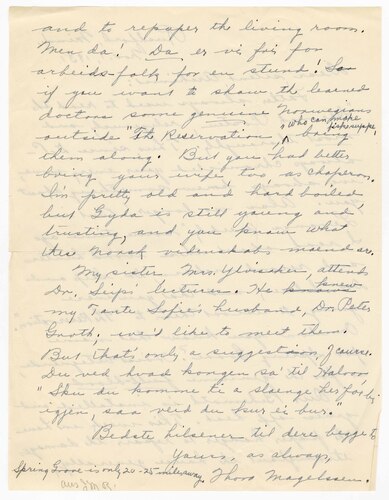 and to repaper the living room.
Men da! Da er vi fri for
arbeids-folk for en stund! So
if you want to show the learned
doctors some genuine Norwegians
who can make
fiskesuppe
outside "The Reservation", bring
them along. But you had better
bring your wife, too, as chaperon.
I'm pretty old and hard boiled
but Gyda is still young and
trusting, and you know what
the Norsk videnskabs maend er.
My sister Mrs. Ylvisaker, attends
Dr. Seip's lectures. He knew
my Tante Sofie's husband, Dr. Peter
Groth; we'd like to meet them.
But that's only a suggestion, of course.
Du ved hvad kongen sa' til Haloon
"Sku du komme te å slaenge her forbi
igjen, saa veid du kur ei bur."
Bedste hilsener til dere begge to
Yours, as always,
Thora Magelssen.
Spring Grove is only 20-25 miles away.
ans J.M.R.